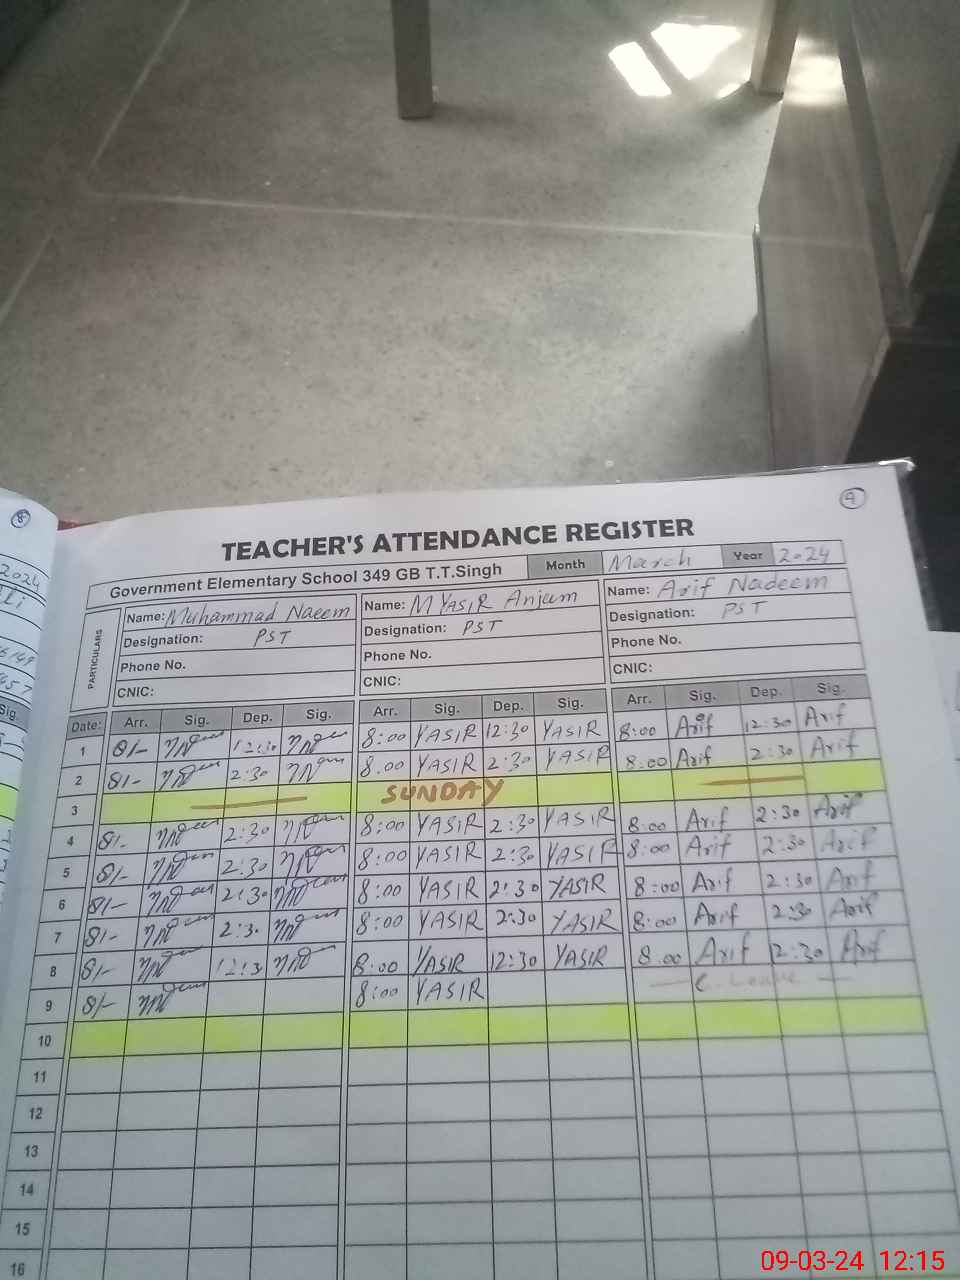 8
9
TEACHER'S ATTENDANCE REGISTER
Government Elementary School 349 GB T.T.Singh Month March Year 2024
2024
PARTICULARS
Name: Muhammad Naeem Name: M YASIR Anjum Name: Arif Nadeem
Designation: PST Designation: PST Designation: PST
Phone No. Phone No. Phone No.
CNIC: CNIC: CNIC:
Sig.
Date: Arr. Sig. Dep. Sig. Arr. Sig. Dep. Sig. Arr. Sig. Dep. Sig.
1 8/- 12:30 8:00 YASIR 12:30 YASIR 8:00 Arif 12:30 Arif
2 8/- 2:30 8:00 YASIR 2:30 YASIR 8:00 Arif 2:30 Arif
3 SUNDAY
4 8/- 2:30 8:00 YASIR 2:30 YASIR 8:00 Arif 2:30 Arif
5 8/- 2:30 8:00 YASIR 2:30 YASIR 8:00 Arif 2:30 Arif
6 8/- 2:30 8:00 YASIR 2:30 YASIR 8:00 Arif 2:30 Arif
7 8/- 2:3. 8:00 YASIR 2:30 YASIR 8:00 Arif 2:30 Arif
8 8/- 12:3 8:00 YASIR 12:30 YASIR 8:00 Arif 12:30 Arif
9 8/- 8:00 YASIR — C. Leave —
10
11
12
13
14
15
16
09-03-24 12:15